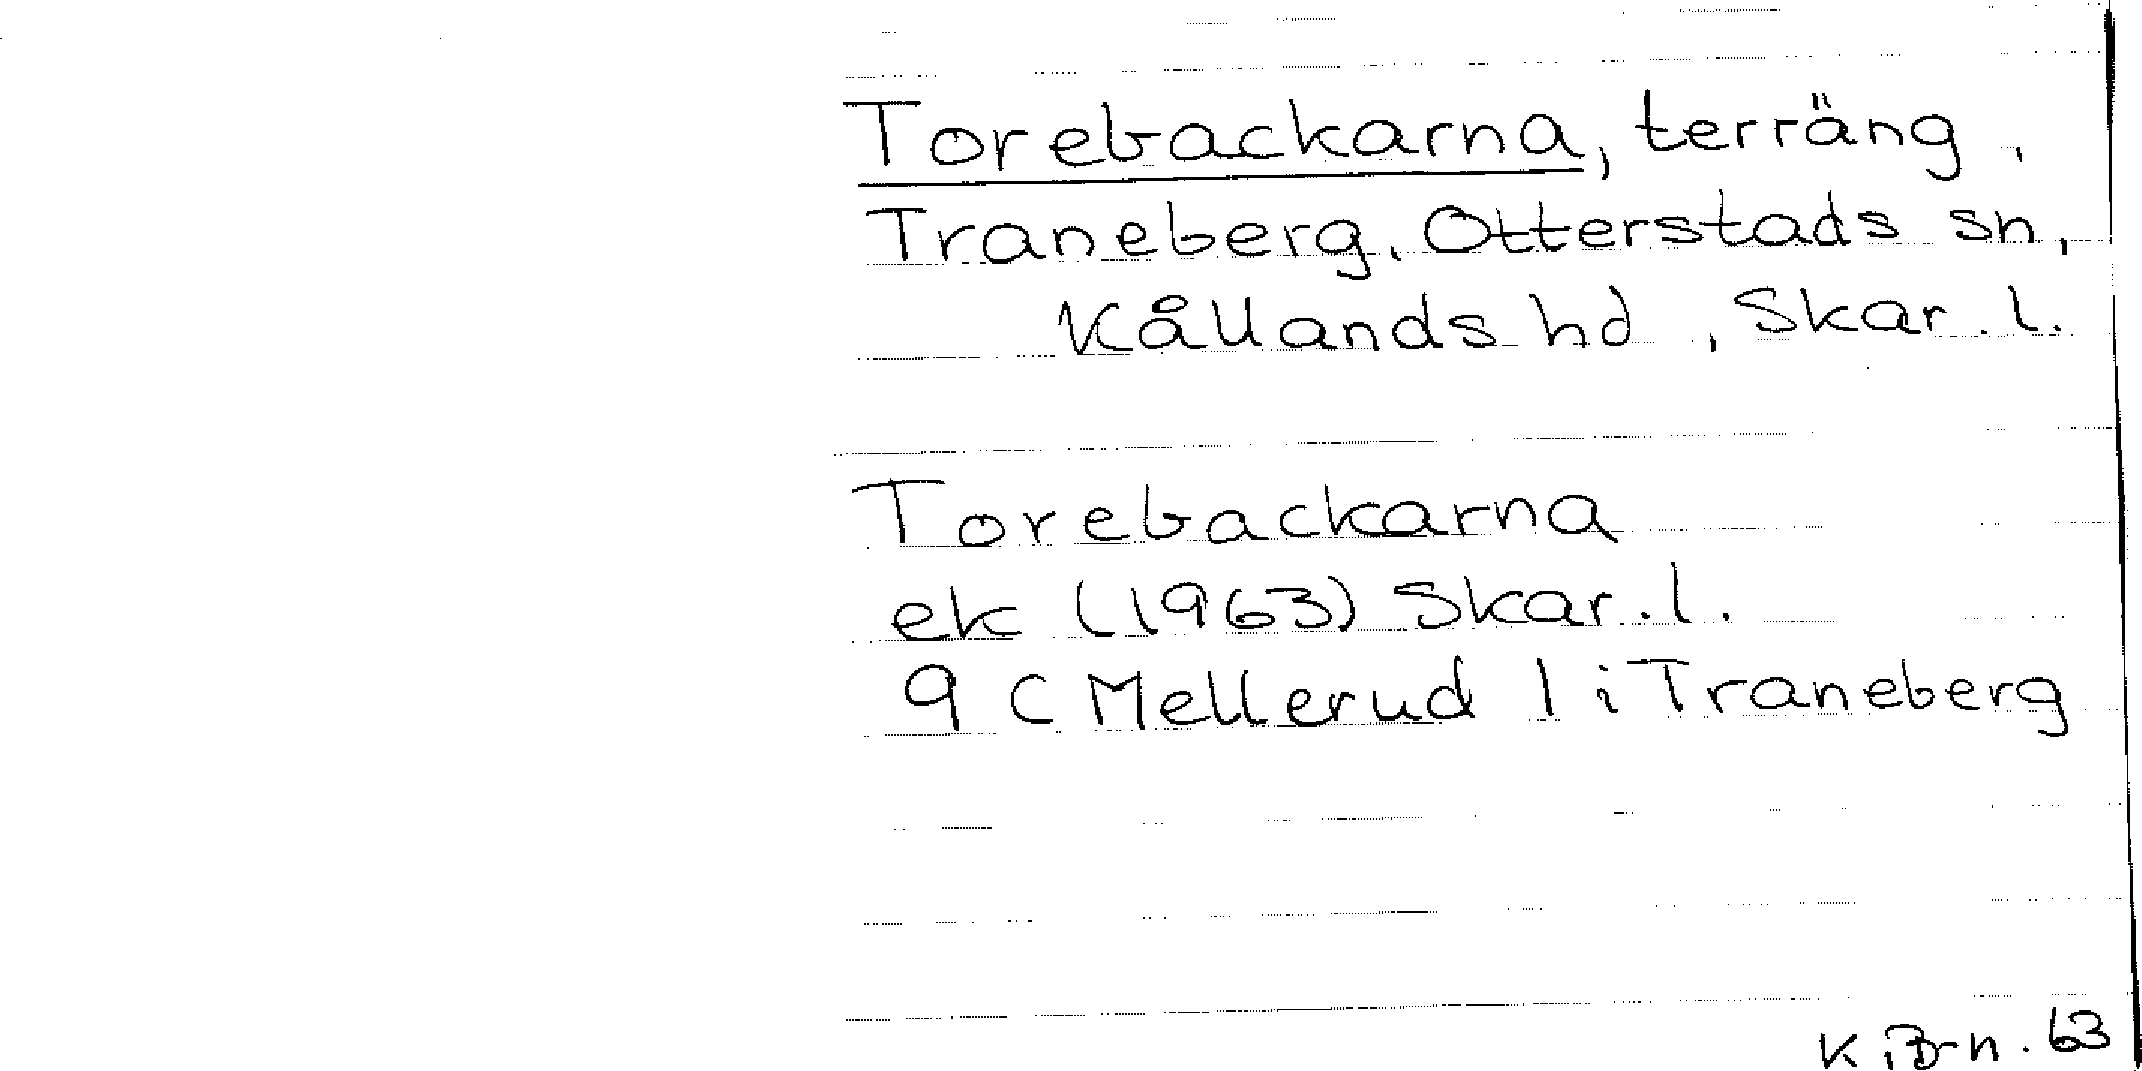 Torebackarna, terräng,
Traneberg, Otterstads sn,
Kållands hd, Skar. l.
Torebackarna
ek (1963) Skar. l.
9 C Mellerud 1 i Traneberg
63